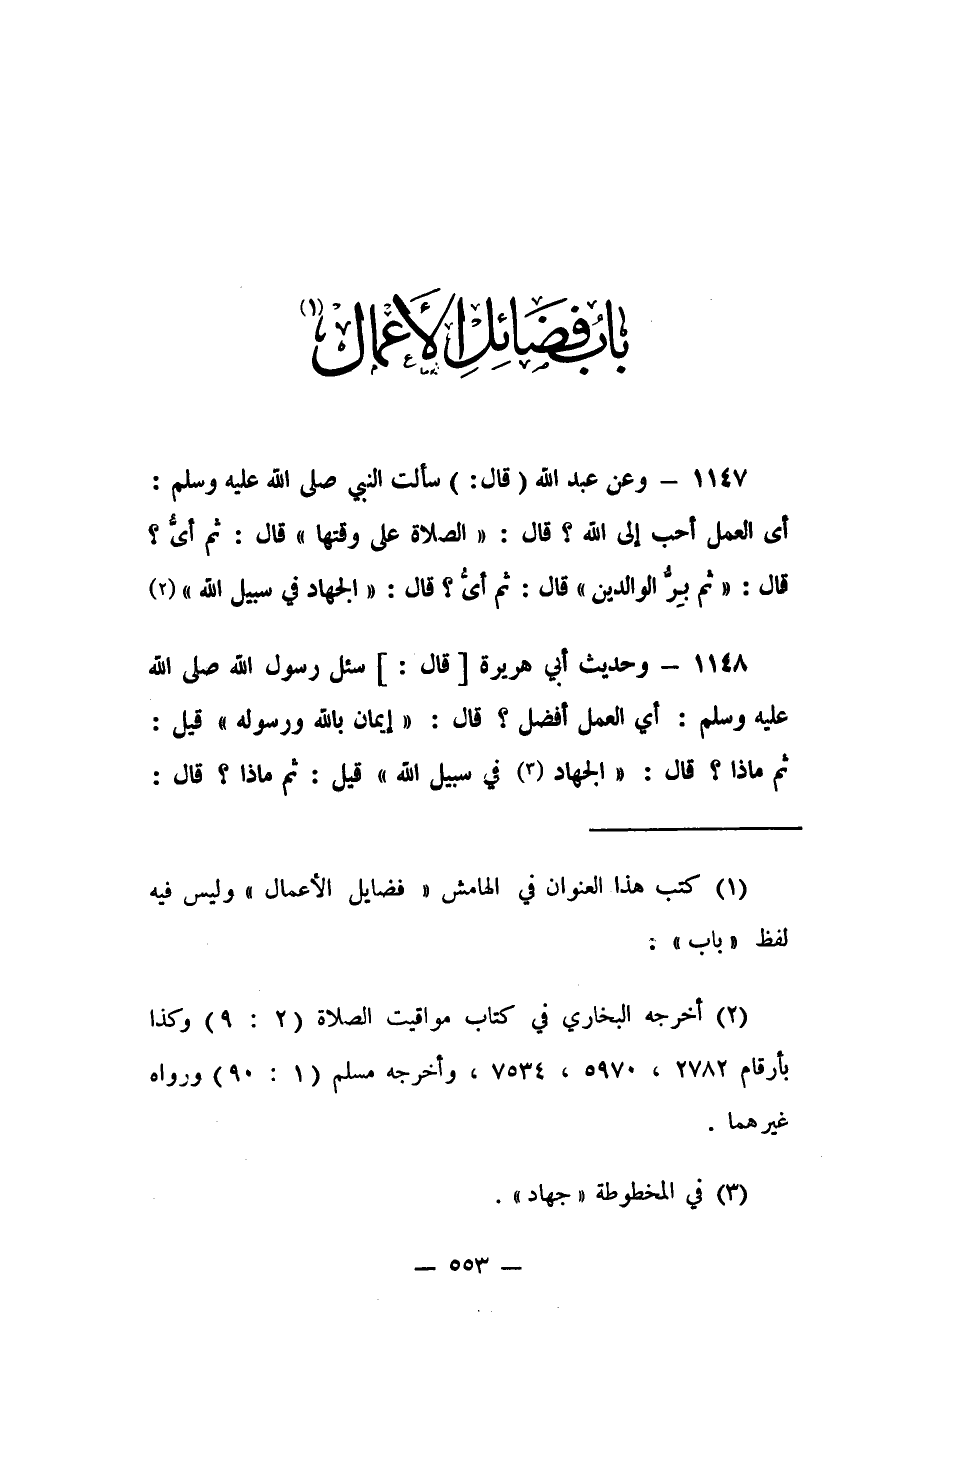 باب فضائل الأعمال (١)
١١٤٧ – وعن عبد الله ( قال: ) سألت النبي صلى الله عليه وسلم :
أى العمل أحب إلى الله ؟ قال : « الصلاة على وقتها » قال : ثم أىُّ ؟
قال : « ثم بِرُّ الوالدين » قال : ثم أىُّ ؟ قال : « الجهاد في سبيل الله » (٢)
١١٤٨ – وحديث أبي هريرة [ قال : ] سئل رسول الله صلى الله
عليه وسلم : أي العمل أفضل ؟ قال : « إيمان بالله ورسوله » قيل :
ثم ماذا ؟ قال : « الجهاد (٣) في سبيل الله » قيل : ثم ماذا ؟ قال :
(١) كتب هذا العنوان في الهامش « فضايل الأعمال » وليس فيه
لفظ « باب » :
(٢) أخرجه البخاري في كتاب مواقيت الصلاة ( ٢ : ٩ ) وكذا
بأرقام ٢٧٨٢ ، ٥٩٧٠ ، ٧٥٣٤ ، وأخرجه مسلم ( ١ : ٩٠ ) ورواه
غيرهما .
(٣) في المخطوطة « جهاد » .
– ٥٥٣ –